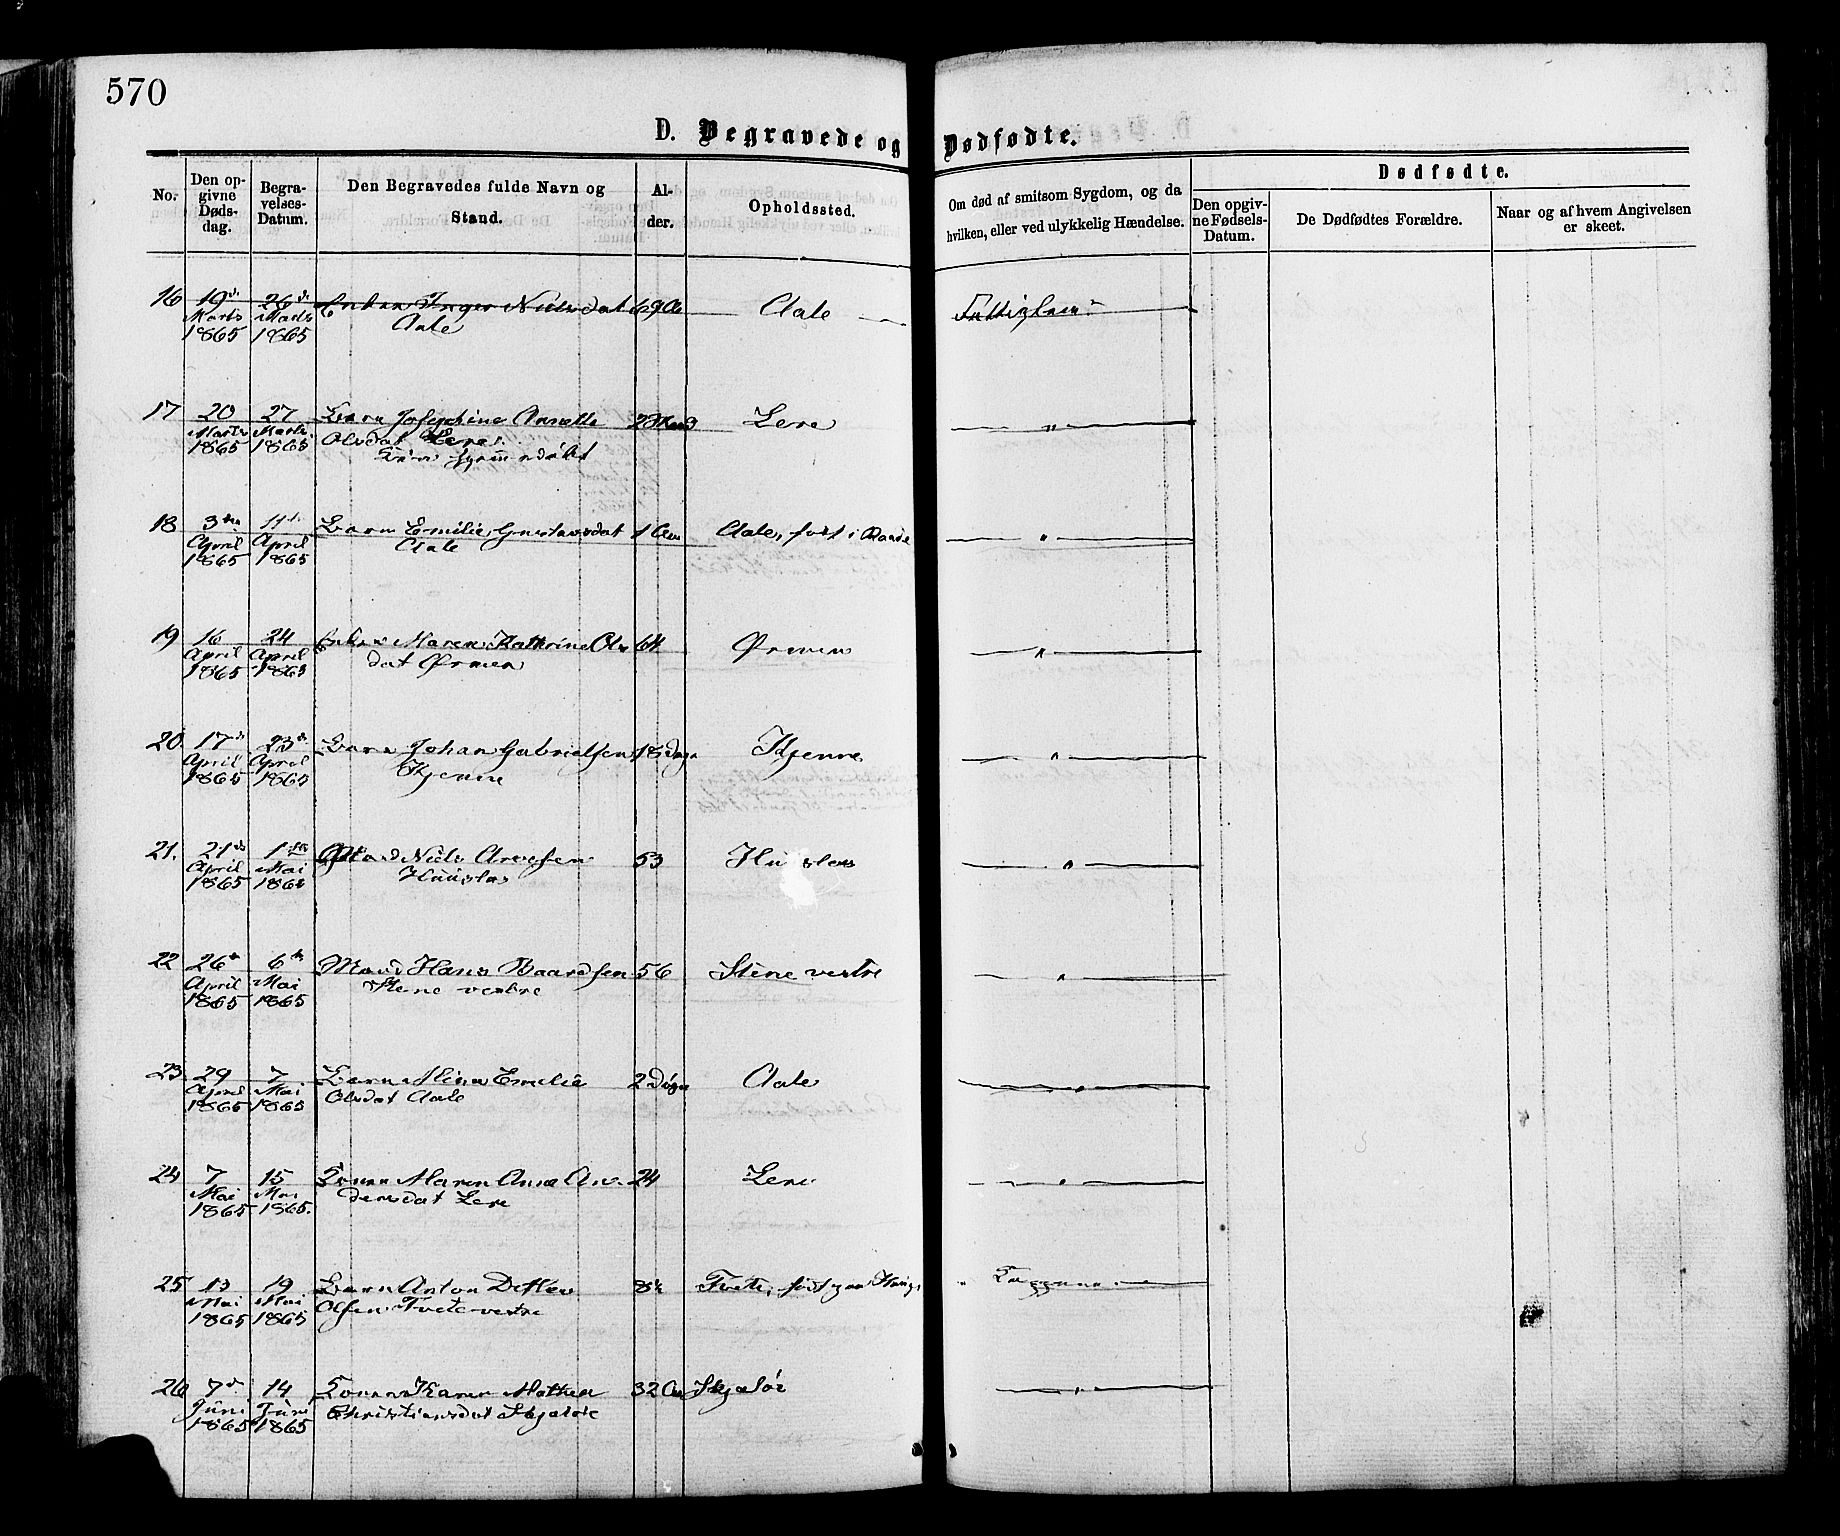 570
D. Begravede og Dødfødte.
No.
Den opgivne Dødsdag.
Begravelses-Datum.
Den Begravedes fulde Navn og Stand.
Alder.
Opholdssted.
Om død af smitsom Sygdom, og da hvilken, eller ved ulykkelig Hændelse.
Dødfødte.
Den opgivne Fødsels-Datum.
De Dødfødtes Forældre.
Naar og af hvem Angivelsen er skeet.
16 19de 26de Enken Inger Nielsdat 69 Aale
Marts Marts Aale
1865 1865
17 20 27 Barn Josephine Anette 2 Lere "
Marts Marts Olsdat Lere
1865 1865
18 3die 11te Barn Emilie Gustavsdat 1 Aale, født i "
April April Aale
1865 1865
19 16 24 Enken Maren Kathrine Ols 64 Ørmen "
April April dat Ørmen
1865 1865
20. 17de 23de Barn Johan Gabrielsen 18 Dage Kjenne "
April April Kjenne
1865 1865
21. 21de 1ste Niels Arvesen 53 "
April Mai
1865
22 26de 6te Mand Hans Baardsen 56 Stene vestre "
April Mai Stene vestre
1865 1865
23. 29 7 Barn Mina Emelie 2 Døgn Aale "
April Mai Olsdat Aale
1865 1865
24 7 15 Konen Maren Anne An- 24 Lere "
Mai Mai dersdat Lere
1865 1865.
25 13 19 Barn Anton Detlev 8 Tvete, født paa
Mai Mai Olsen Tvete vestre
1865 1865
26 7de 14 Konen Karen Mathea 32 Aar Skjeløe "
Juni Juni Christiansdat Skjeløe
1865 1865